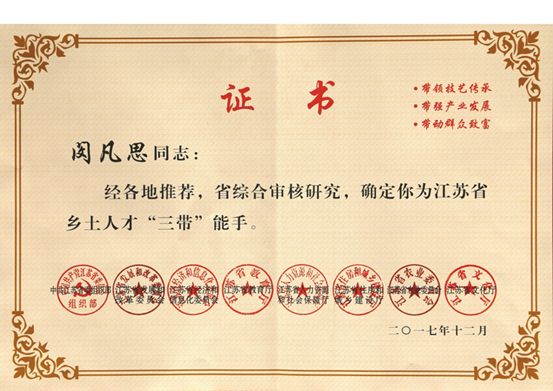 证 书
·带领技艺传承
·带强产业发展
·带动群众致富
闵凡思同志：
经各地推荐，省综合审核研究，确定你为江苏省
乡土人才“三带”能手。
中共江苏省委组织部 江苏省发展和改革委员会 江苏省经济和信息化委员会 江苏省教育厅 江苏省人力资源和社会保障厅 江苏省住房和城乡建设厅 江苏省农业委员会 江苏省文化厅
二〇一七年十二月